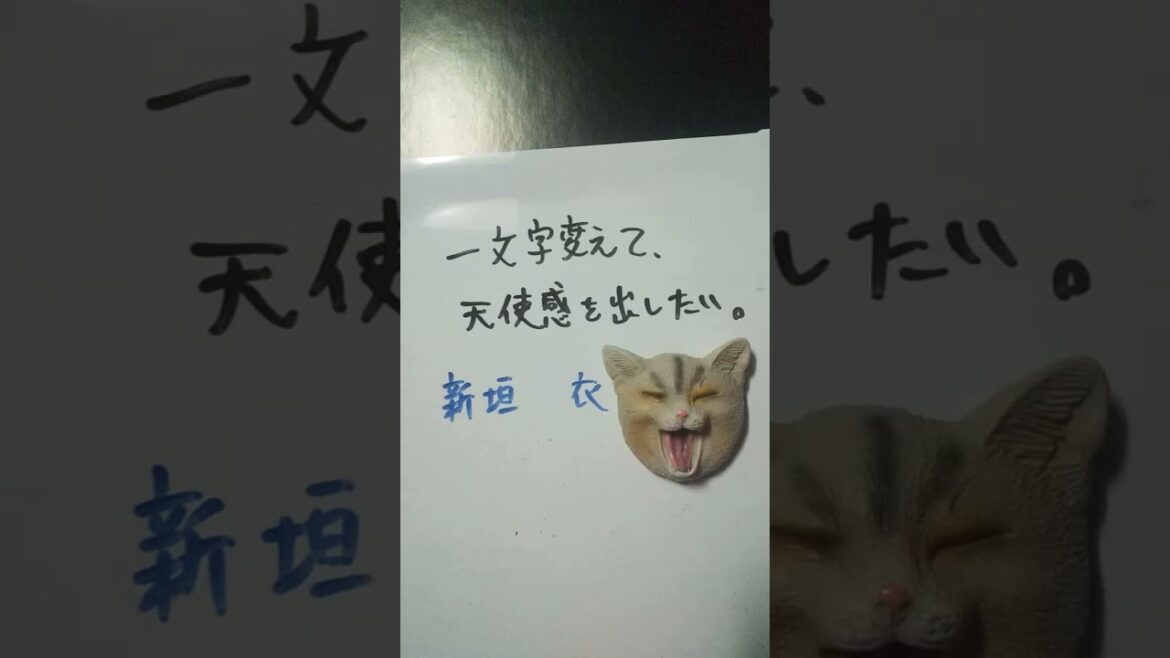 一文字変えて、
天使感を出したい。
新垣 衣